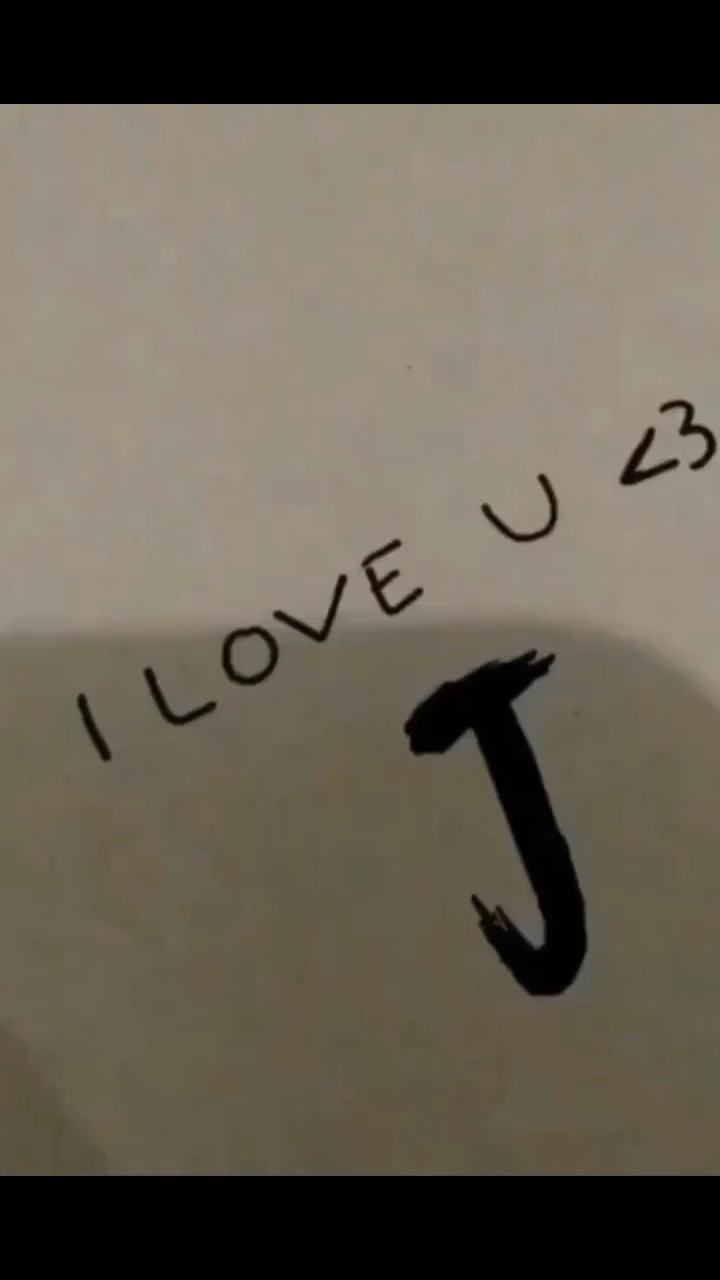 I LOVE U <3
J